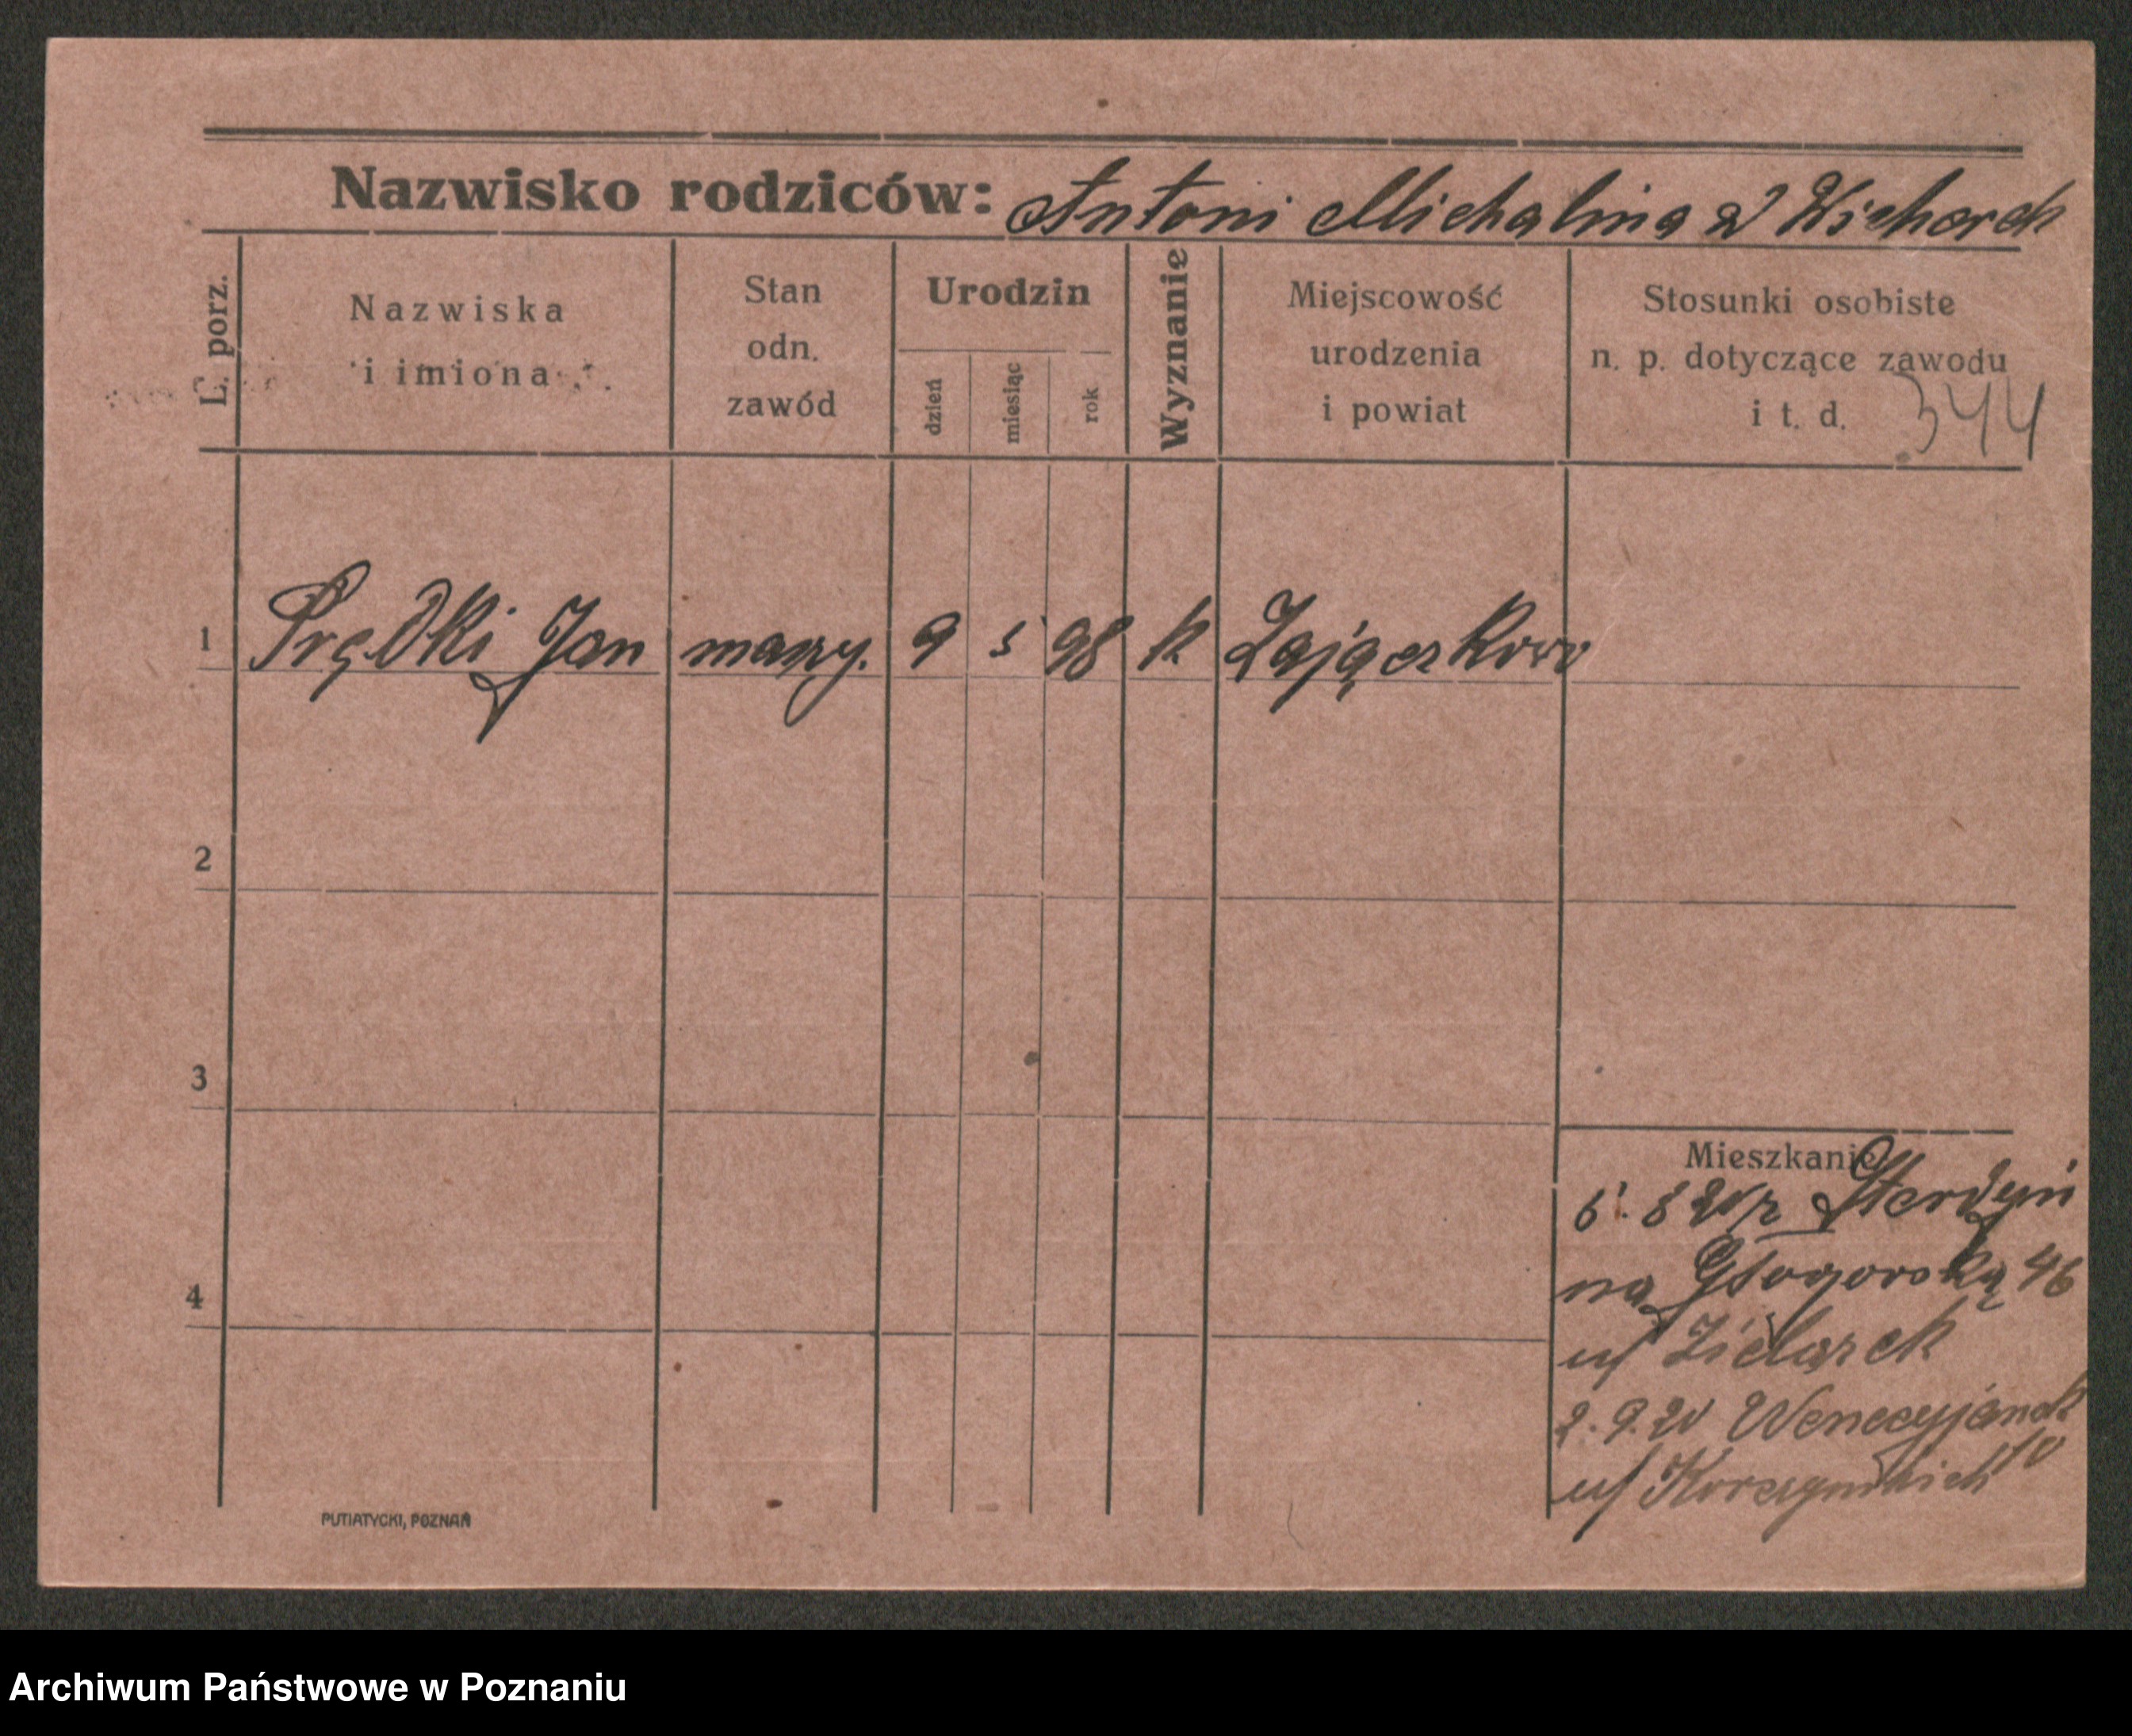 Nazwisko rodziców: Antoni Michalina z Wichorek
L. porz.
Nazwiska
i imiona
Stan
odn.
zawód
Urodzin
dzień
miesiąc
rok
Wyznanie
Miejscowość
urodzenia
i powiat
Stosunki osobiste
n. p. dotyczące zawodu
i t. d.
344
1 Prądki Jan 9 5 98 k. Zajączkowo
2
3
4
Mieszkanie
na Głogowską 46
u/ Zielarek
2.9.20 Wenecyjanek
10
PUTIATYCKI, POZNAŃ
Archiwum Państwowe w Poznaniu